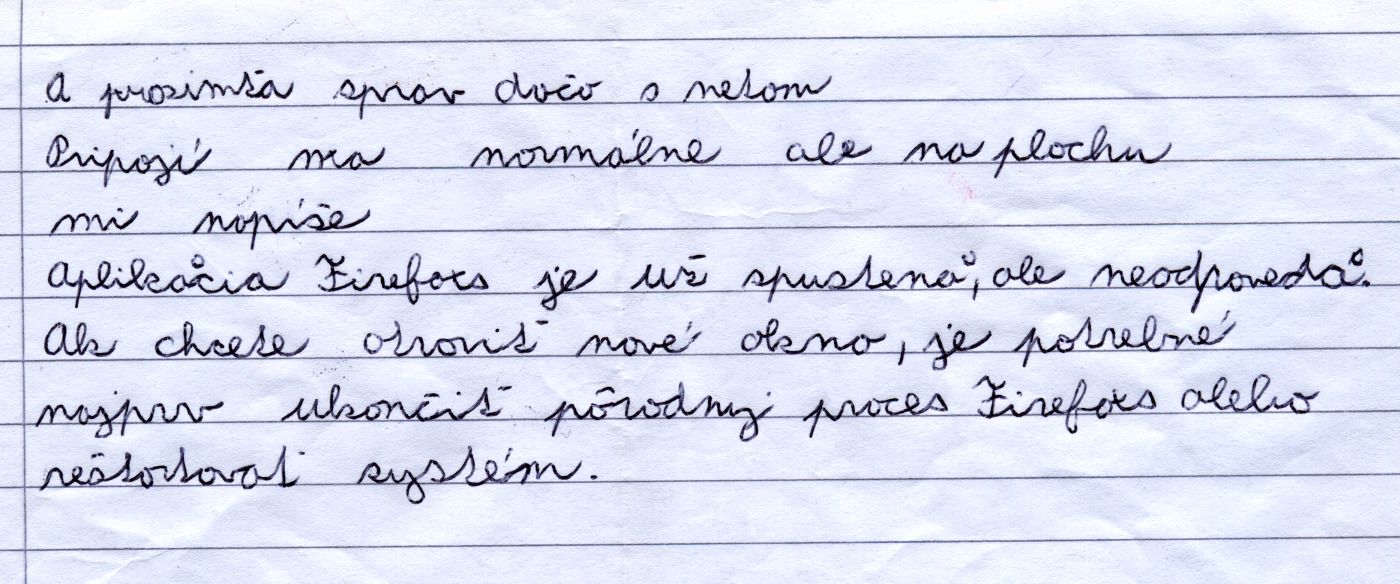 A prosimťa sprav dočo s netom
Pripojí ma normálne ale na plochu
mi napíše
Aplikácia Firefox je už spustená, ale neodpovedá.
Ak chcete otvoriť nové okno, je potrebné
najprv ukončiť pôvodný proces Firefox alebo
reštartovať systém.